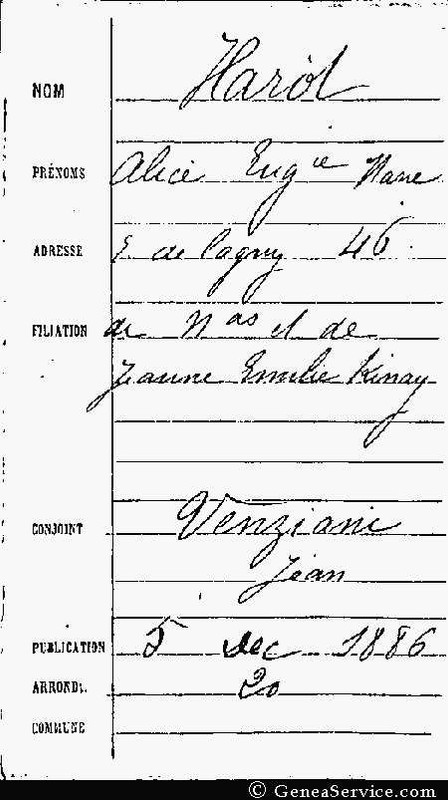 NOM Harôt
PRÉNOMS Alice Eug<sup>ie</sup> Marie
ADRESSE de Lagny 46
FILIATION de N<sup>as</sup> et de
Jeanne Emilie Kinay
CONJOINT Venziani
Jean
PUBLICATION 5 Dec 1886
ARROND<sup>t</sup>. 20
COMMUNE
© GeneaService.com